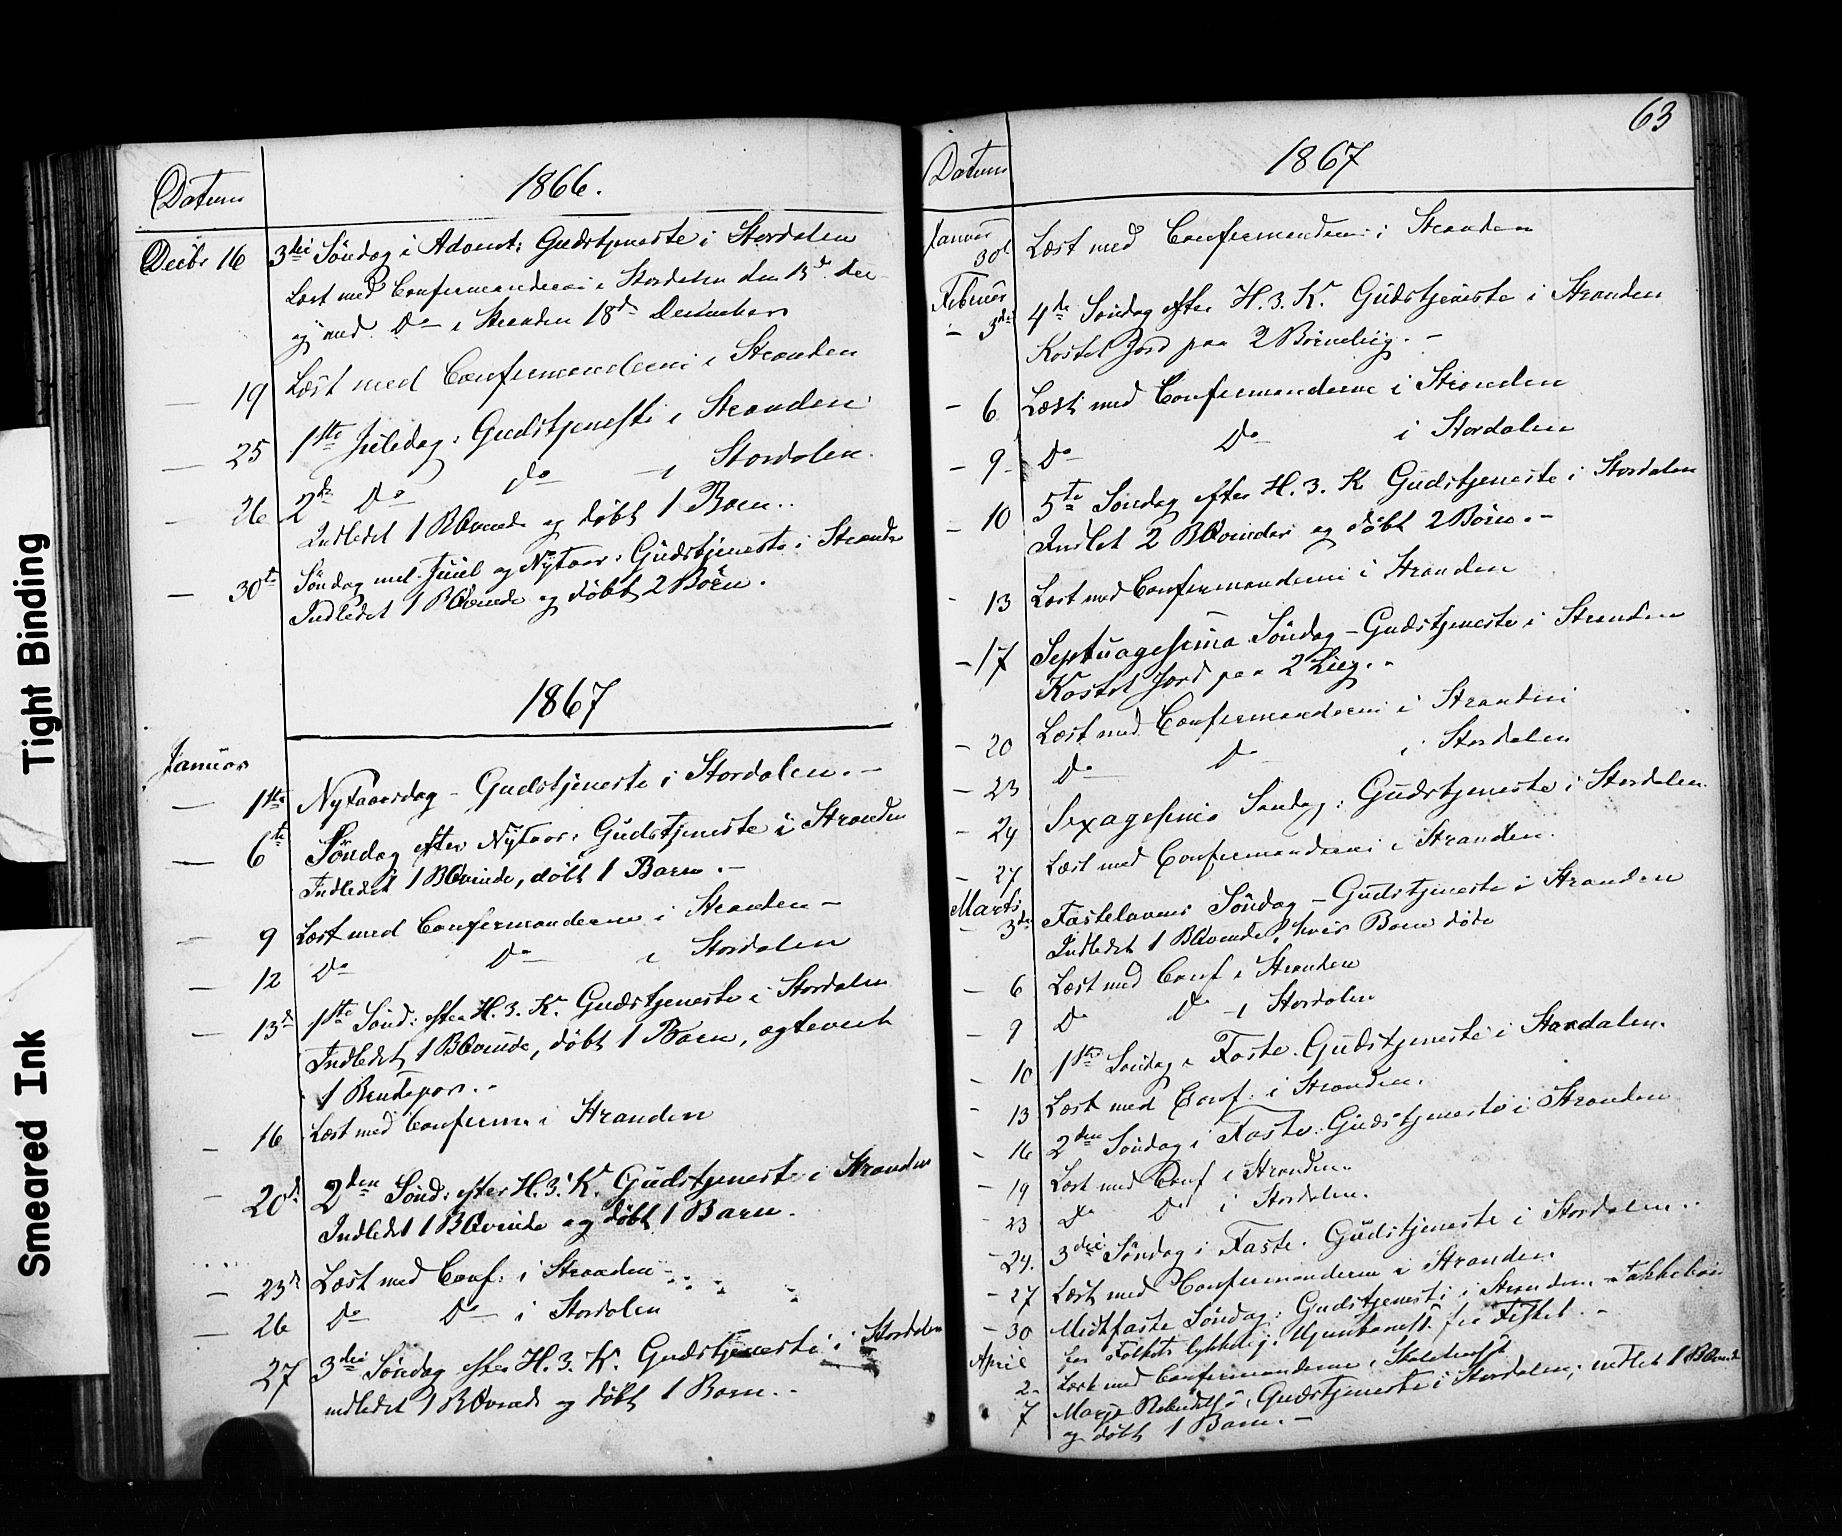 Datum
1866.
Decbr 16 3die Søndag i Advent: Gudstjeneste i Stordalen
Læst med Confirmanderne i Stordalen den 15d. Dec.
og med Do i Stranden 18d December
— 19 Læst med Confirmanderne i Stranden
— 25 1ste Juledag: Gudstjeneste i Stranden
— 26 2d Do do — i Stordalen.
Indledet 1 BQvinde og døbt 1 Barn..
— 30te Søndag mel. Juul og Nytaar: Gudstjeneste i Stranden
Indledet 1 BQvinde og døbt 2 Børn.
1867
Januar
— 1ste Nytaarsdag – Gudstjeneste i Stordalen. –
— 6te Søndag efter Nytaar: Gudstjeneste i Stranden
Indledet 1 BQvinde, døbt 1 Barn. –
— 9 Læst med Confirmanderne i Stranden –
— 12 Do Do i Stordalen
— 13d 1ste Sønd: efter H. 3. K. Gudstjeneste i Stordalen
Indledet 1 BQvinde, døbt 1 Barn, og
1 Brudepar. –
— 16 Læst med Confirm. i Stranden
— 20d 2den Sønd: efter H. 3. K. Gudstjeneste i Stranden
Indledet 1 BQvinde og døbt 1 Barn.
— 23d Læst med Conf: i Stranden –
— 26 Do Do i Stordalen
27 3die Søndag efter H. 3. K. Gudstjeneste i Stordalen
indledet 1 BQvinde og døbt 1 Barn. –
63
Datum
1867
Januar
30d Læst med Confirmanderne i Stranden
Februar
– 3die 4de Søndag efter H. 3. K. Gudstjeneste i Stranden
Kastet Jord paa 2 Børnelig. –
– 6 Læst med Confirmanderne i Stranden
– 9 – Do Do i Stordalen
– 10 5te Søndag efter H. 3. K Gudstjeneste i Stordalen
Indlet 2 BQvinder og døbt 2 Børn. –
– 13 Læst med Confirmanderne i Stranden
– 17 Septuagesima Søndag – Gudstjeneste i Stranden
Kastet Jord paa 2 Liig. –
– 20 Læst med Confirmanderne i Stranden
– 23 Do Do i Stordalen
– 24 Sexagesima Søndag: Gudstjeneste i Stordalen.
– 27 Læst med Confirmanderne i Stranden.
Marts
– 3die Fastelavns Søndag – Gudstjeneste i Stranden
Indledet 1 BQvinde, hvis Barn døde
– 6 Læst med Conf i Stranden
– 9 Do Do – i Stordalen
– 10 1ste Søndag i Faste. Gudstjeneste i Stordalen.
– 13 Læst med Conf: i Stranden.
– 16 2den Søndag i Faste: Gudstjeneste i Stranden
– 19 Læst med Conf i Stranden.
– 23 Do Do i Stordalen.
– 24. 3die Søndag i Faste. Gudstjeneste i Stordalen..
– 27 Læst med Confirmanderne i Stranden.
– 30 Midtfaste Søndag: Gudstjeneste i Stranden. – Takkebøn
for Folkets lykkelig: Hjemkomst fra Fisket. –
April
2 – Læst med Confirmanderne i
7 Marje Bebudelse, Gudstjeneste i Stordalen, indlet 1 BQvinde
og døbt 1 Barn. –
Tight Binding
Smeared Ink